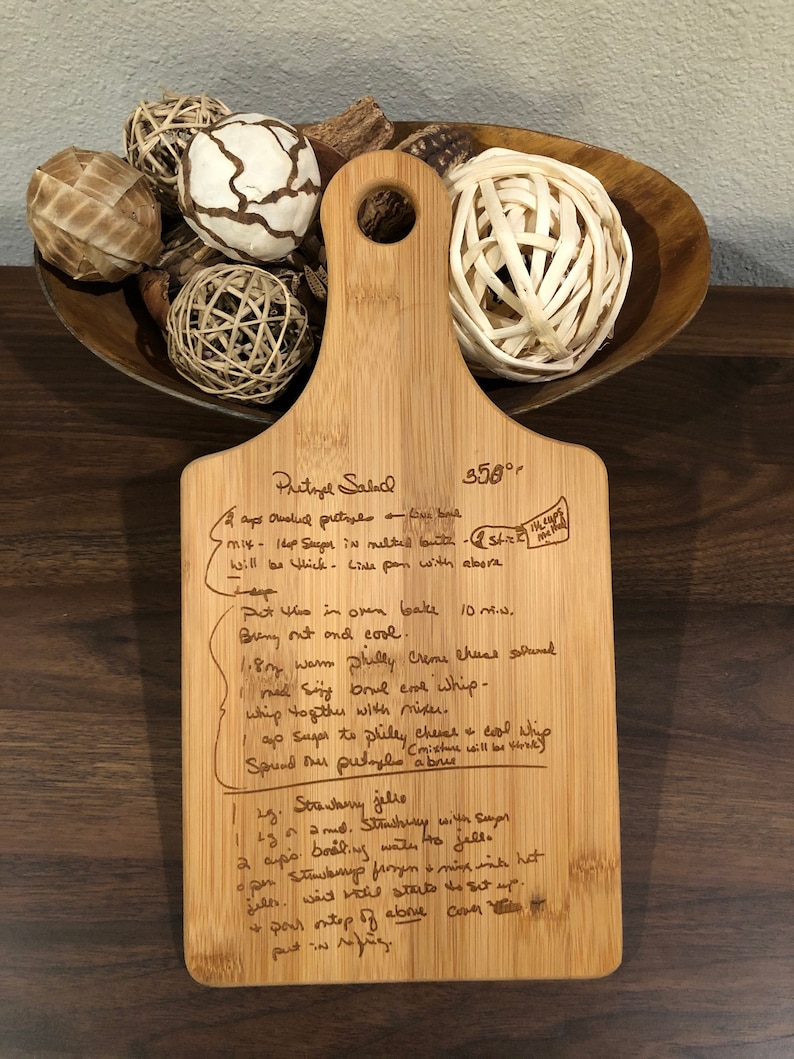 Pretzel Salad 350°F
2 cups crushed pretzels ← Line bowl
mix - 1 cup Sugar in melted butter - 2 sticks 1 1/2 cups melted
Will be thick - Line pan with above
Put this in oven bake 10 min.
Bring out and cool.
1. 8 oz warm Philly Creme Cheese softened
1 med size bowl cool whip -
whip together with mixer.
1 cup sugar to philly cheese + cool whip
(mixture will be thick)
Spread over pretzels above
1 Lg. Strawberry jello
1 Lg or 2 med. Strawberrys with sugar
2 cups boiling water to jello
open Strawberrys frozen + mix into hot
jello. wait until starts to set up.
+ pour ontop of above cover
put in refrig.